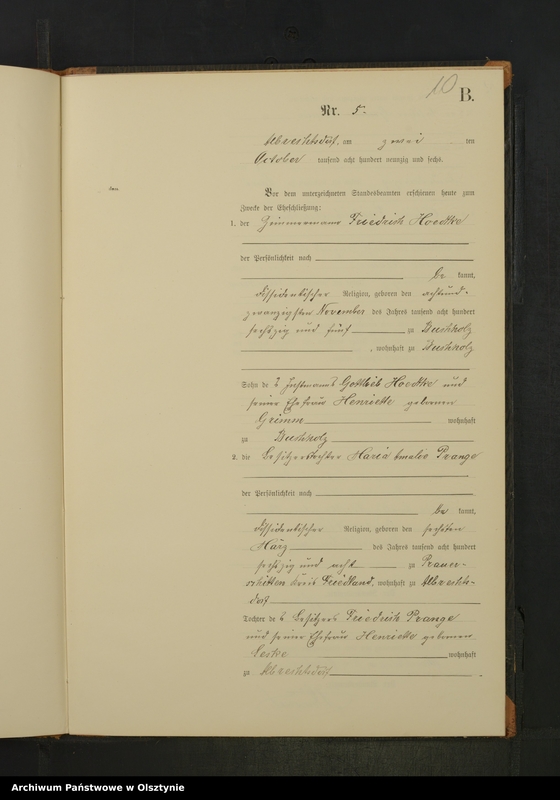 10
B.
Nr. 5.
Albrechtsdorf, am zwei ten
October tausend acht hundert neunzig und sechs.
Vor dem unterzeichneten Standesbeamten erschienen heute zum
Zwecke der Eheschließung:
1. der Zimmermann Friedrich Hoedtke
der Persönlichkeit nach
be kannt,
dissidentischer Religion, geboren den achtund-
zwanzigsten November des Jahres tausend acht hundert
sechszig und fünf zu Buchholz
, wohnhaft zu Buchholz
Sohn des Instmanns Gottlieb Hoedtke und
seiner Ehefrau Henriette geborenen
Grimm wohnhaft
zu Buchholz
2. die Besitzerstochter Maria Amalie Prange
der Persönlichkeit nach
be kannt,
dissidentischer Religion, geboren den sechsten
März des Jahres tausend acht hundert
sechszig und acht zu
Kreis Friedland, wohnhaft zu Albrechts-
dorf
Tochter des Besitzers Friedrich Prange
und seiner Ehefrau Henriette geborenen
Leske wohnhaft
zu Albrechtsdorf
Archiwum Państwowe w Olsztynie